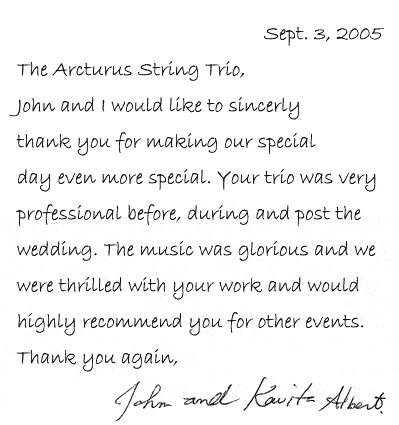 Sept. 3, 2005
The Arcturus String Trio,
John and I would like to sincerly
thank you for making our special
day even more special. Your trio was very
professional before, during and post the
wedding. The music was glorious and we
were thrilled with your work and would
highly recommend you for other events.
Thank you again,
John and Kavita Albert.